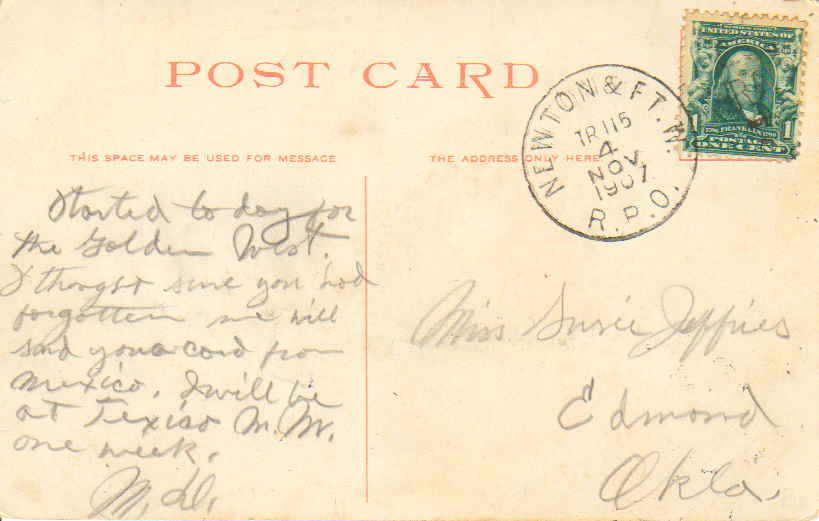 POST CARD
UNITED STATES OF
AMERICA
1 FRANKLIN 1
POSTAGE
ONE CENT
NEWTON & FT. W.
TR 115
4
NOV
1907
R.P.O.
THIS SPACE MAY BE USED FOR MESSAGE
THE ADDRESS ONLY HERE
Started to day for
the Golden West.
I thought sure you had
forgotten me will
send you a card from
Mexico. I will be
at Texico N. M.
one week.
Miss Susie Jeffries
Edmond
Okla.